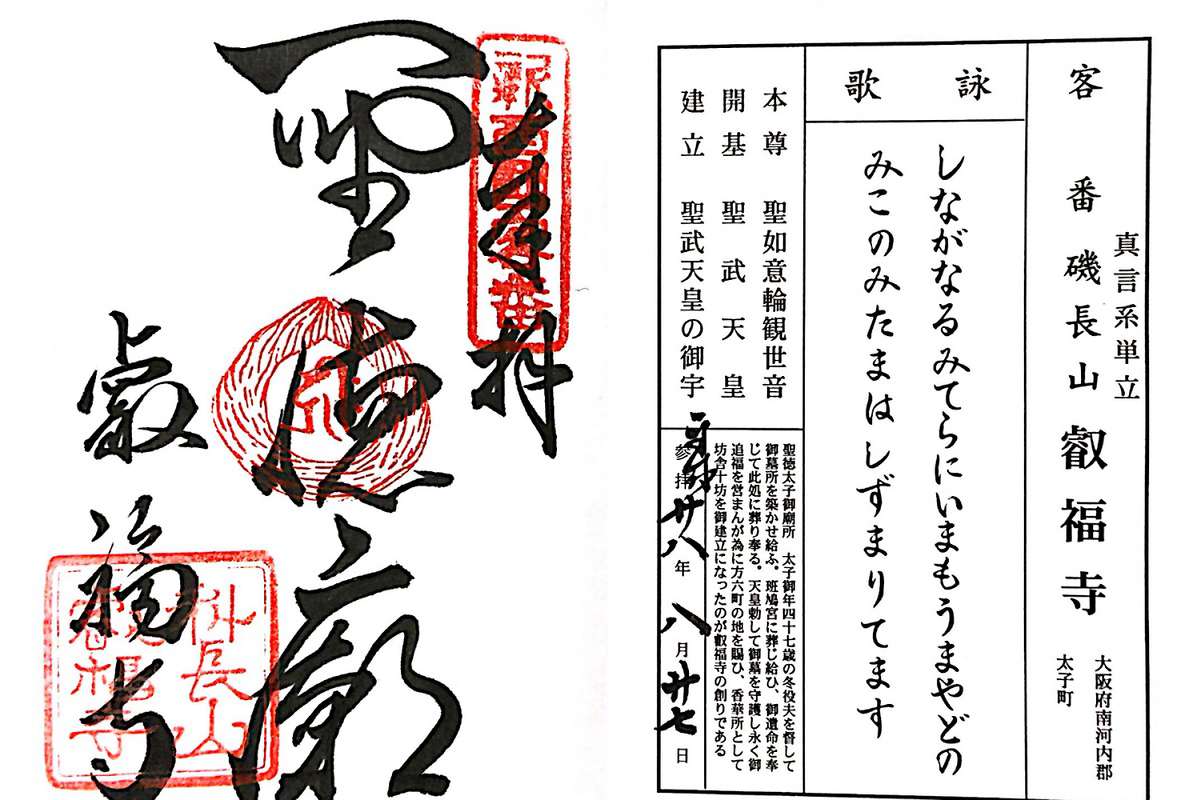 客番
真言系単立
磯長山 叡福寺
大阪府南河内郡
太子町
詠歌
しながなるみてらにいまもうまやどの
みこのみたまはしずまりてます
本尊 聖如意輪観世音
開基 聖武天皇
建立 聖武天皇の御宇
聖徳太子御廟所 太子御年四十七歳の冬役夫を督して
御墓所を築かせ給ふ。斑鳩宮に葬じ給ひ、御遺命を奉
じて此処に葬り奉る。天皇勅して御墓を守護し永く御
追福を営まんが為に方六町の地を賜ひ、香華所として
坊舎十坊を御建立になったのが叡福寺の創りである
参拝 平成廿八年 八月廿七日
奉拝
聖徳廟
叡福寺
科長山
叡福寺